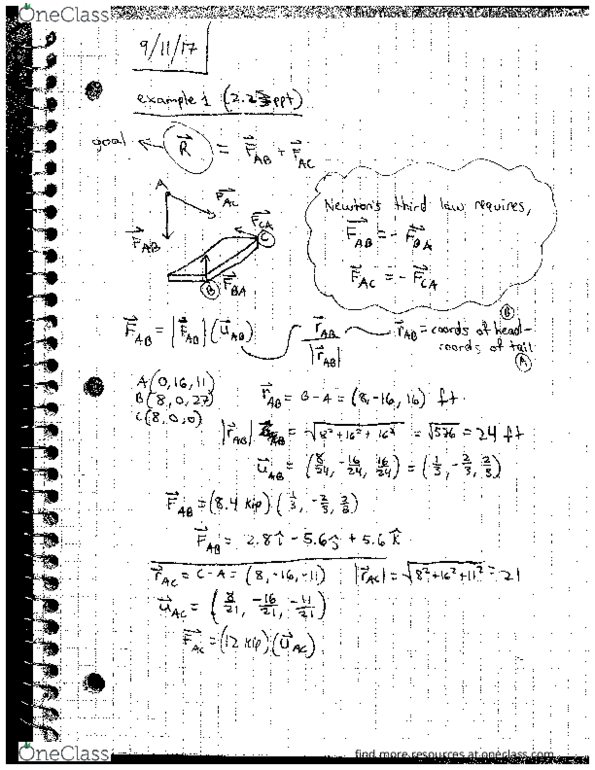 OneClass
find more resources at oneclass.com
9/11/17
example 1 (2.2 ppt)
goal ← R⃗ = F⃗AB + F⃗AC
A
F⃗AC
F⃗AB
F⃗CA
C
B
F⃗BA
Newton's third law requires,
F⃗AB = - F⃗BA
F⃗AC = - F⃗CA
F⃗AB = |F⃗AB| (u⃗AB)
r⃗AB / |r⃗AB|
r⃗AB = coords of head - (B)
coords of tail (A)
A(0,16,11)
B(8,0,27)
C(8,0,0)
r⃗AB = B-A = (8,-16,16) ft
|r⃗AB| = √8²+16²+16² = √576 = 24 ft
u⃗AB = (8/24, -16/24, 16/24) = (1/3, -2/3, 2/3)
F⃗AB = (8.4 kip) (1/3, -2/3, 2/3)
F⃗AB = 2.8î - 5.6ĵ + 5.6k̂
r⃗AC = C-A = (8,-16,-11) |r⃗AC| = √8²+16²+11² = 21
u⃗AC = (8/21, -16/21, -11/21)
F⃗AC = (12 kip) (u⃗AC)
OneClass
find more resources at oneclass.com